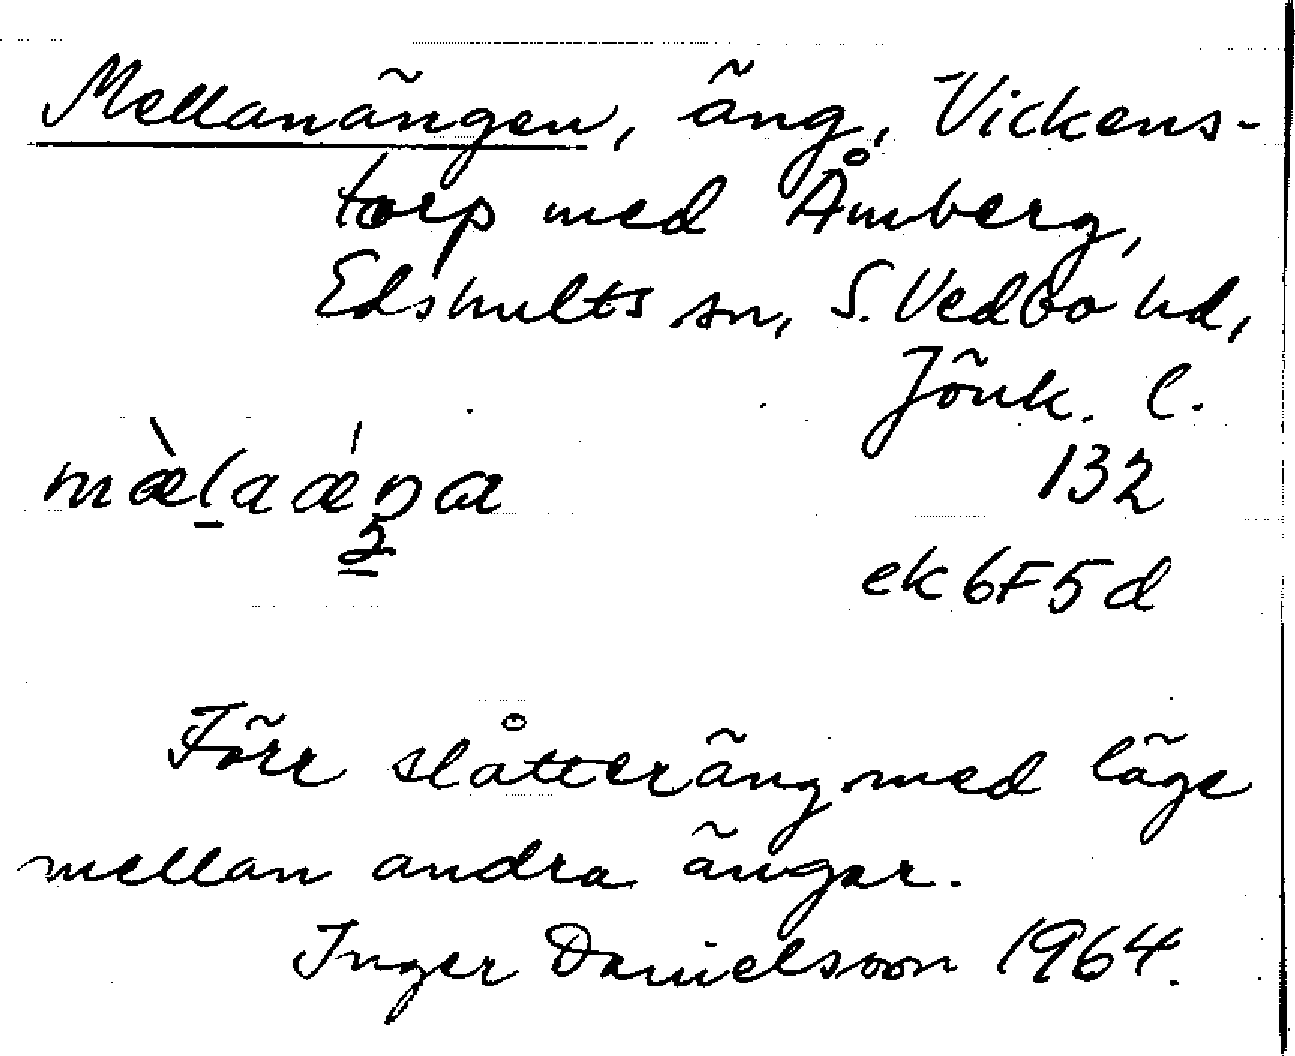 Mellanängen, äng, Vickens-
torp med Åmberg,
Edshults sn, S. Vedbo hd,
Jönk. l.
132
ek 6F5d
Förr slåtteräng med läge
mellan andra ängar.
Inger Danielsson 1964.